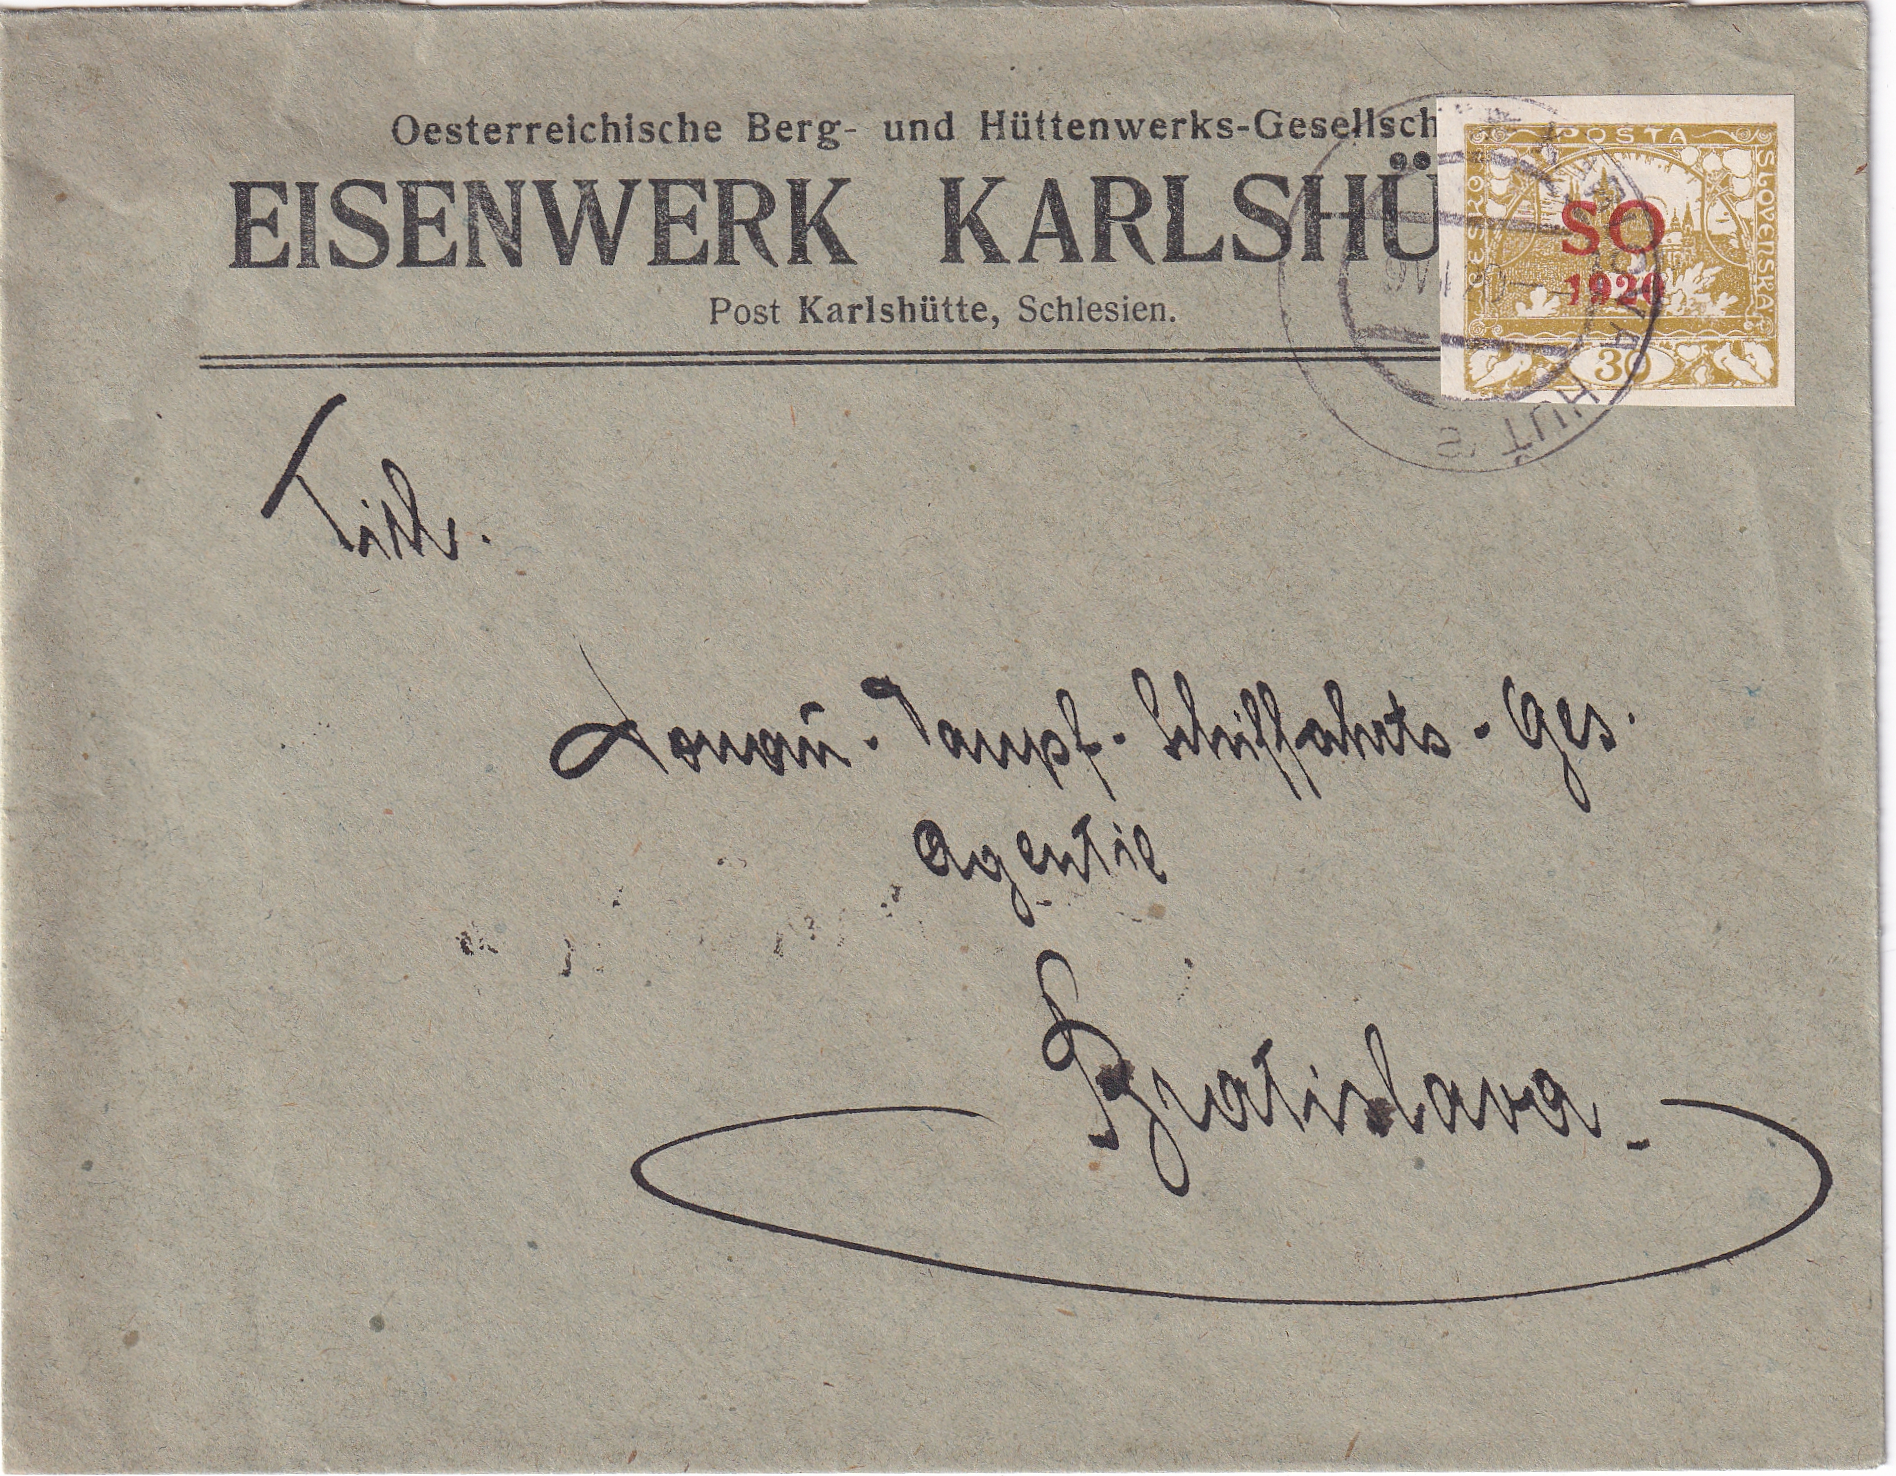 Oesterreichische Berg- und Hüttenwerks-Gesellsch
EISENWERK KARLSHÜ
Post Karlshütte, Schlesien.
POSTA
ČESKO
SLOVENSKÁ
SO
1920
30
KARLOVA HUŤ
Titl.
Donau-Dampf-Schiffahrts-Ges.
Agentie
Bratislava